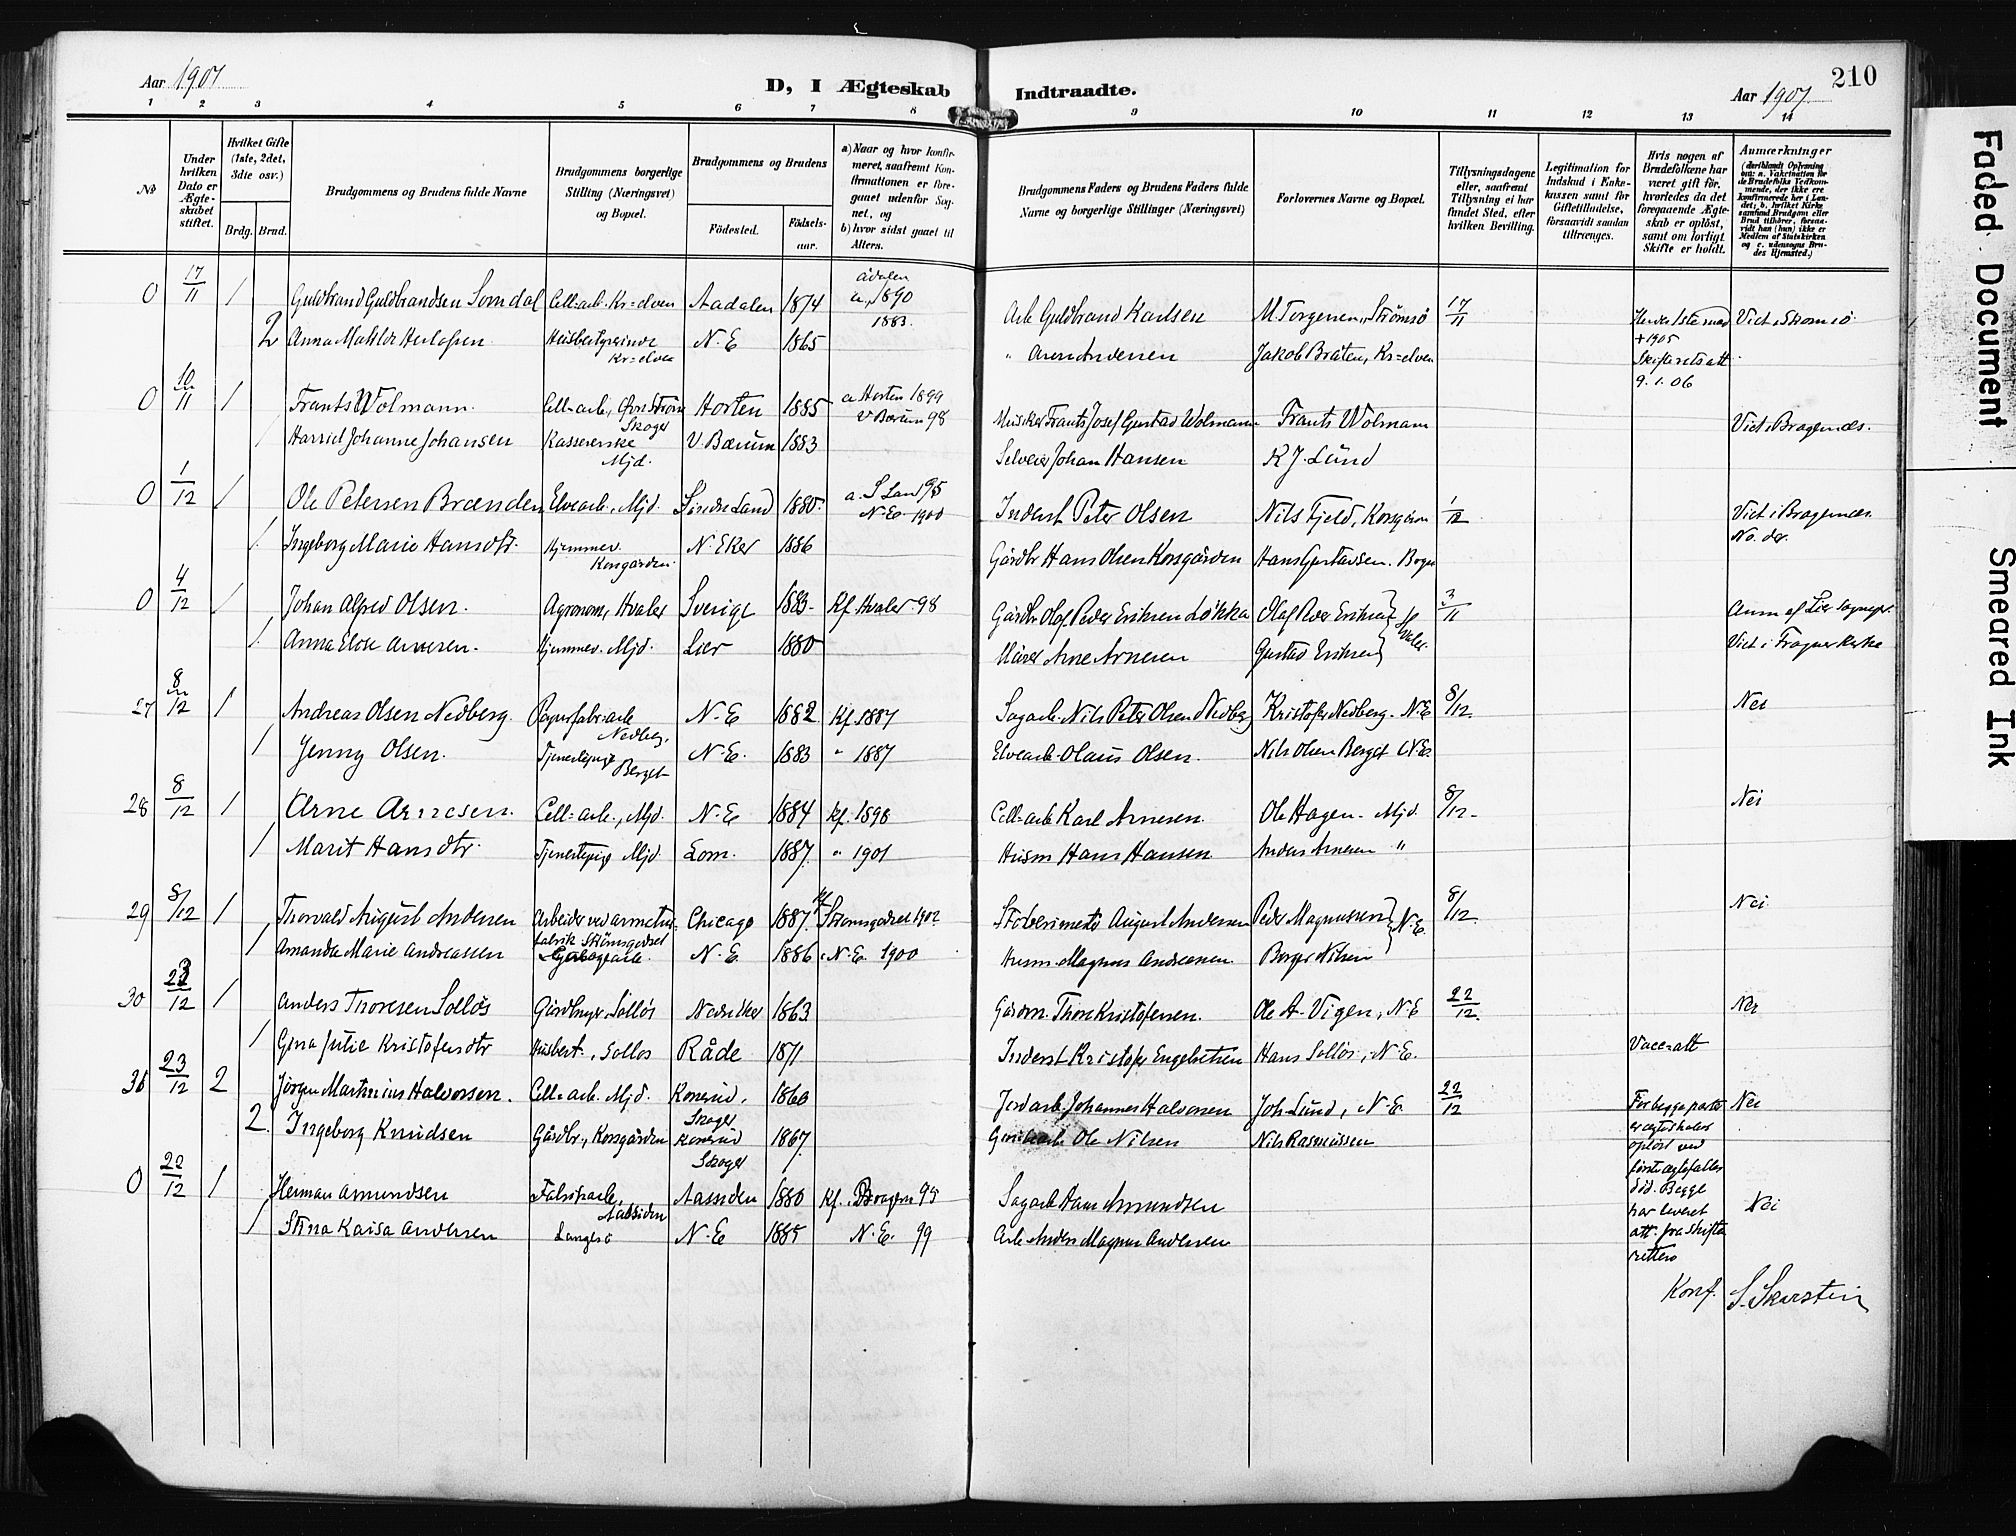 Aar 1907
D, I Ægteskab Indtraadte.
Aar 1907.
210
1 2 3 4 5 6 7 8 9 10 11 12 13 14
No
Under hvilken Dato er Ægteskabet stiftet.
Hvilket Gifte (1ste, 2det, 3die osv.)
Brdg. Brud.
Brudgommens og Brudens fulde Navne
Brudgommens borgerlige Stilling (Næringsvei) og Bopæl.
Brudgommens og Brudens
Fødested.
Fødselsaar.
a) Naar og hvor konfirmeret, saafremt Konfirmationen er foregaaet udenfor Sognet, og
b) hvor sidst gaaet til Alters.
Brudgommens Faders og Brudens Faders fulde Navne og borgerlige Stillinger (Næringsvei)
Forlovernes Navne og Bopæl.
Tillysningsdagene eller, saafremt Tillysning ei har fundet Sted, efter hvilken Bevilling.
Legitimation for Indskud i Enkekassen samt for Giftetilladelse, forsaavidt saadan tiltrænges.
Hvis nogen af Brudefolkene har været gift før, hvorledes da det foregaaende Ægteskab er opløst, samt om lovligt Skifte er holdt.
Anmærkninger
(deriblandt Oplysning om: a. Vakcination for de Brudefolks Vedkommende, der ikke ere konfirmerede her i Landet; b. hvilket Kirkesamfund Brudgom eller Brud tilhører, forsaavidt han (hun) ikke er Medlem af Statskirken og c. udensogns Brudes Hjemsted.)
0 17/11 1 Guldbrand Guldbrandsen Somdal Cell=arb. Kr=elven Aadalen 1874 Ådalen a, 1890 Arb Guldbrand Karlsen M Torgersen, Strømsø 17/11 Viet i Strømsø
2 Anna Matilde Herlofsen Husbestyrerinde Kr=elven N.E 1865 1883. " Aren Andersen Jakob Bråten, Kr=elven
+ 1905
9.1.06
0 10/11 1 Frants Wolmann. Cell=arb, Skoger Horten 1885 a Horten 1899 Musiker Frants Josef Gustad Wolmann Frants Wolmann Viet i Bragernæs.
1 Harriet Johanne Johansen Kassererske Mjd. V. Bærum 1883 V Bærum 98 Selveier Johan Hansen K J. Lund
0 1/12 1 Ole Petersen Brænden Elvearb., Mjd. Søndre Land 1880. a. S Land 95 Inderst Peter Olsen Nils Fjeld, Korsgården 1/12 Viet i Bragernæs
1 Ingeborg Marie Hansdtr. Hjemmev. Korsgården. N. Eker 1886 N.E 1900 Gårdbr Hans Olsen Korsgården Hans Gustavsen.
0 4/12 1 Johan Alfred Olsen. Agronom, Hvaler Sverige 1883- Kf Hvaler 98 Gårdbr Olaf Peder Eriksen Løkka Olaf Peder Eriksen 3/11 Anm af Lier Sognepr.
1 Anna Elise Arnesen. Hjemmev. Mjd. Lier 1880 Murer Arne Arnesen Gustad Eriksen Hvaler. Viet i Frogner Kirke
27 8/12 1 Andreas Olsen Nedberg. Papirfabr=arb Nedberg. N.E 1882 Kf. 1897 Sagarb. Nils Peter Olsen Nedberg Kristofer Nedberg. N.E 8/12. Nei
1 Jenny Olsen. Tjenestepige Berget N.E. 1883 " 1887 Elvearb. Olaus Olsen. Nils Olsen Berget N.E.
28 8/12 1 Arne Arnesen. Cell=arb., Mjd. N.E 1884 Kf. 1898 Cell=arb Karl Arnesen. Ole Hagen. Mjd. 8/12. Nei
1 Marit Hansdtr. Tjenestepige Mjd. Lom. 1887. " 1901 Husm Hans Hansen. Anders Arnesen "
29 8/12 1 Thorvald August Andersen Arbeider ved armatur= fabrik Strømsgodset Chicago 1887. Strømsgodset 1902. Støberimester August Andersen Peder Magnussen 8/12. Nei
1 Amanda Marie Andreassen N.E. 1886 N.E. 1900 Husm. Magnus Andreassen Borger Nilsen N.E.
30 22/12 1 Anders Thoresen Solløs Gårdbruger, Solløs Nedre Eker 1863 Gårdm. Thore Kristofersen. Ole A. Vigen, N.E 22/12. Nei
1 Gina Julie Kristofersdtr Husbest., Solløs Råde 1871 Inderst Kristofer Engebretsen Hans Solløs, N.E. Vacc=att
31 23/12 2 Jørgen Martinius Halvorsen. Cell=arb. Mjd. Konerud, Skoger 1860 Jordarb Johannes Halvorsen Joh. Lund, N.E. 22/12 For begge parter er ægteskabet opløst ved først ægtefælles død. Begge har leveret att. fra skifteretten Nei
2. Ingeborg Knudsen Gårdbr., Korsgården Konerud Skoger 1867. Ole Nilsen Nils Rasmussen
0 22/12 1 Herman Amundsen Fabrikarb, Aassiden Aassiden 1880 Kf. Bragern 95 Sagarb Hans Amundsen Nei
1 Stina Kaisa Andersen Langesø N.E 1885 N.E. 99 Arb Anders Magnus Andersen
Konf. S. Skarstein
Faded Document
Smeared Ink